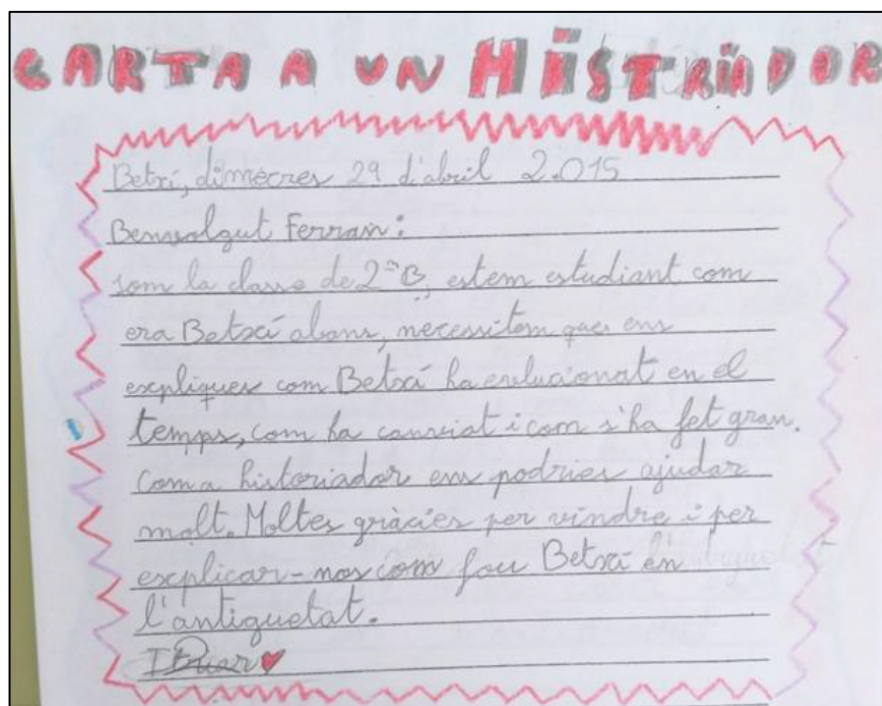 CARTA A UN HISTRIADOR
Betxí, dimecres 29 d'abril 2.015
Benvolgut Ferran:
som la classe de 2ⁿ B, estem estudiant com
era Betxí abans, necessitem que ens
expliques com Betxí ha evolucionat en el
temps, com ha canviat i com s'ha fet gran.
com a historiador ens podries ajudar
molt. Moltes gràcies per vindre i per
explicar-nos com fou Betxí en
l'antiguetat.